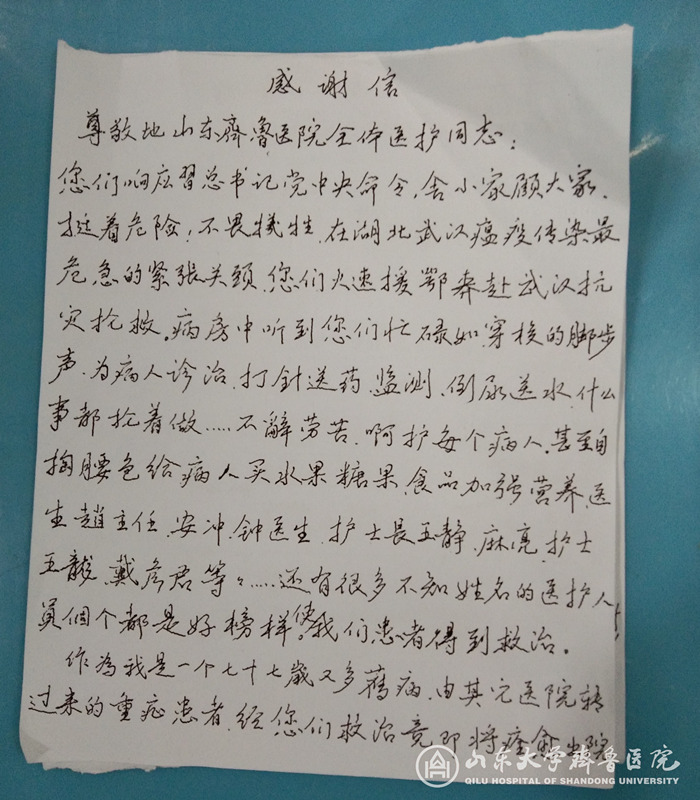 感谢信
尊敬地山东齐鲁医院全体医护同志:
您们响应习总书记党中央命令,舍小家顾大家.
挺着危险!不畏牺牲.在湖北武汉瘟疫传染最
危急的紧张关头.您们火速援鄂奔赴武汉抗
灾抢救.病房中听到您们忙碌如穿梭的脚步
声.为病人诊治.打针送药.监测.倒尿送水.什么
事都抢着做.....不辞劳苦.呵护每个病人.甚至自
掏腰包给病人买水果糖果.食品加强营养.医
生趙主任.安冲.钟医生.护士長玉静.麻亮.护士
王龍.戴彦君等々.....还有很多不知姓名的医护人
員個个都是好榜样.使我们患者得到救治。
作為我是一个七十七歳又多舊病.由其它医院转
过来的重症患者.经您们救治竟即将痊愈出院
山东大学齊鲁医院
QILU HOSPITAL OF SHANDONG UNIVERSITY